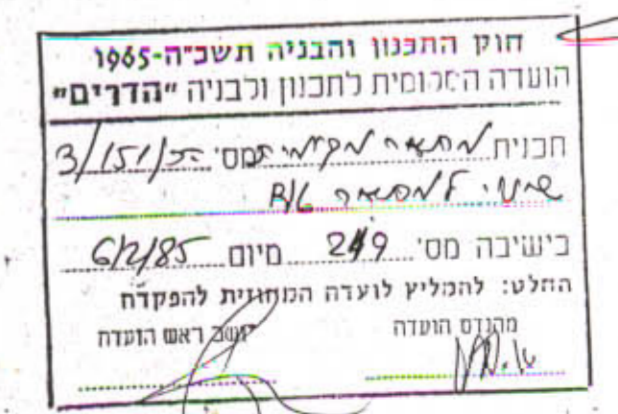 חוק התכנון והבניה תשכ"ה-1965
הועדה המקומית לתכנון ולבניה "הדרים"
תכנית מתאר מקומית מס' הר/151/3
שינוי למתאר
בישיבה מס' 249 מיום 6/2/85
החלט: להמליץ לועדה המחוזית להפקדה
מהנדס הועדה יושב ראש הועדה